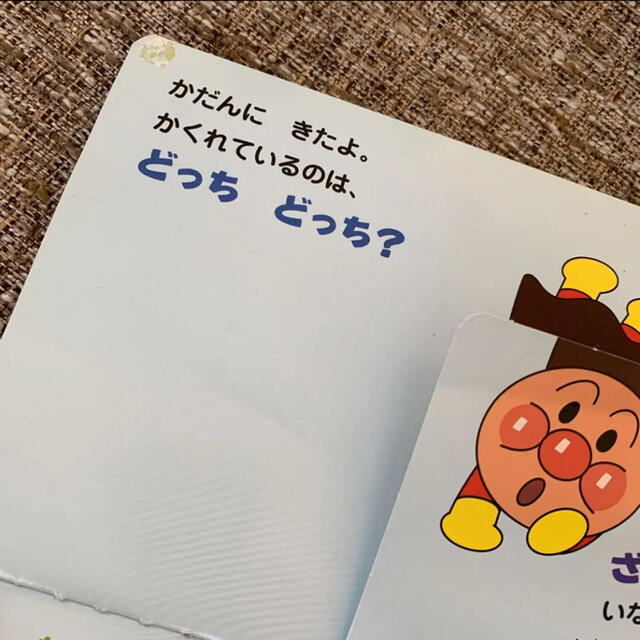 かだんに　きたよ。
かくれているのは、
どっち　どっち？
ざ
いな